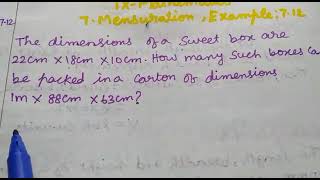 7. Mensuration, Example: 7.12
7.12
The dimensions of a sweet box are
22cm × 18cm × 10cm. How many such boxes ca
be packed in a carton of dimensions
1m × 88cm × 63cm?